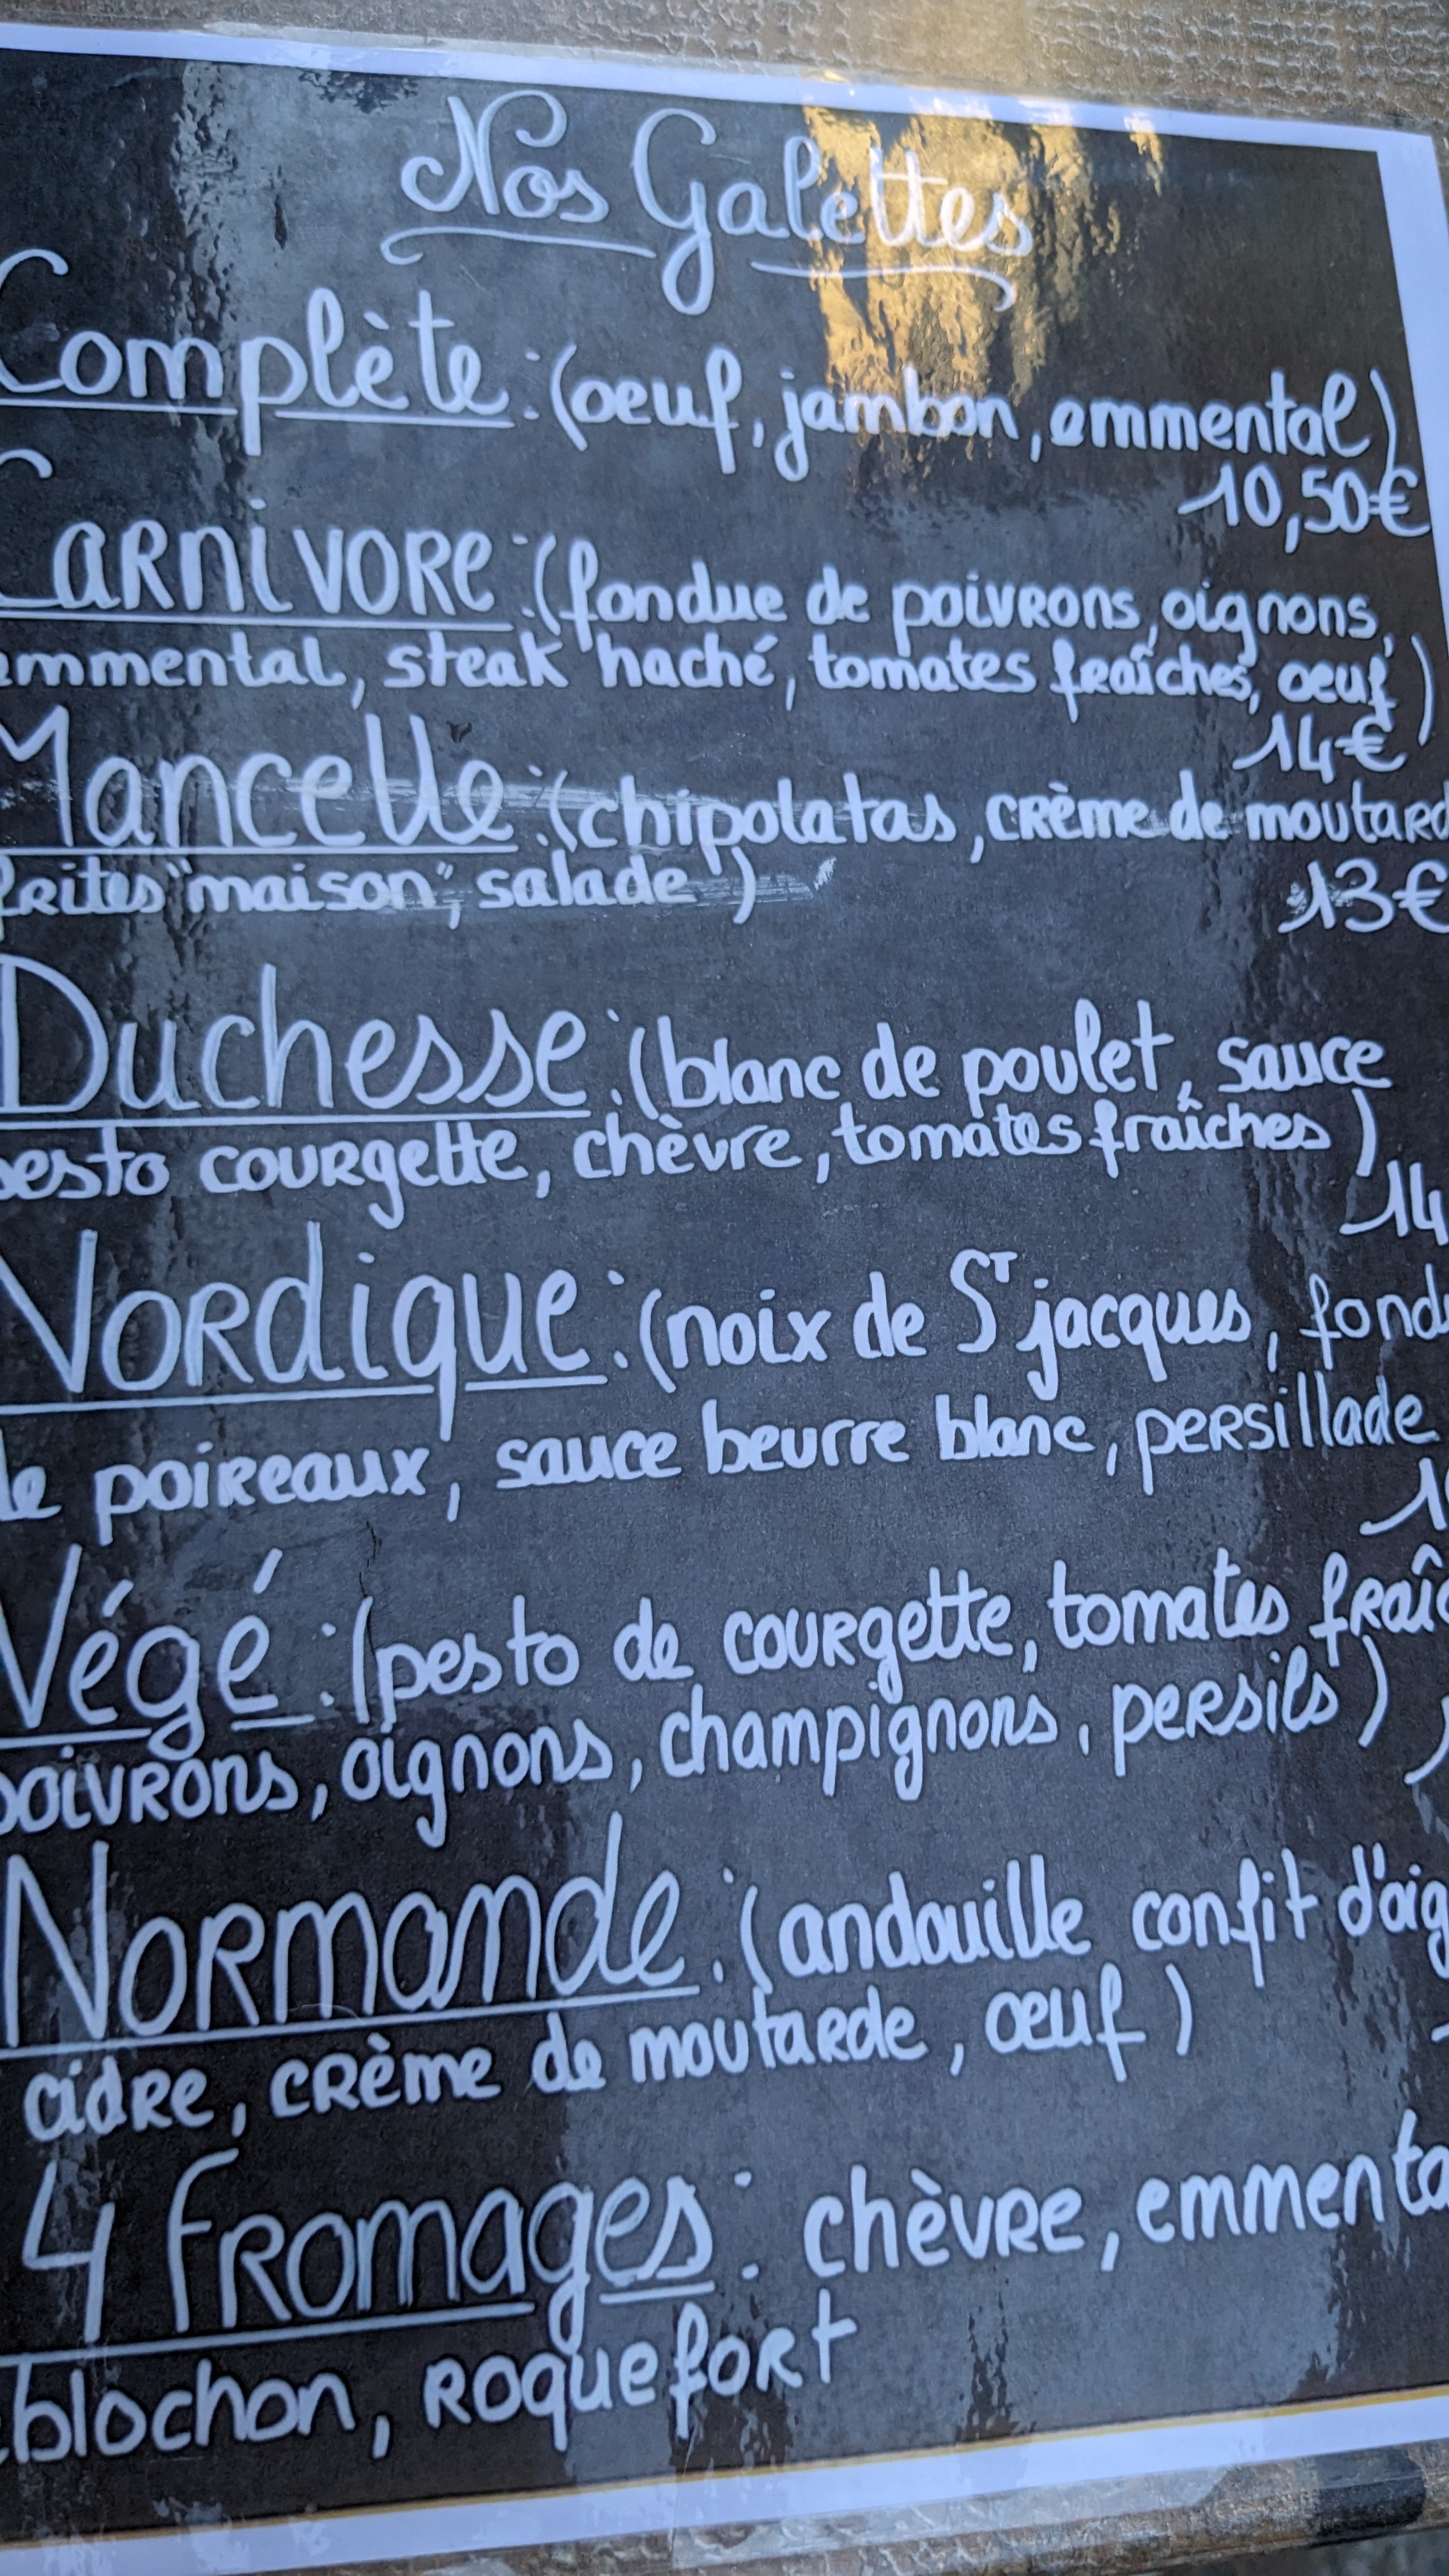 Nos Galettes
Complète : (oeuf, jambon, emmental)
10,50€
Carnivore : (fondue de poivrons, oignons,
emmental, steak haché, tomates fraîches, oeuf)
14€
Mancelle : (chipolatas, crème de moutard
frites "maison", salade)
13€
Duchesse : (blanc de poulet, sauce
pesto courgette, chèvre, tomates fraîches)
14
Nordique : (noix de St jacques, fond
de poireaux, sauce beurre blanc, persillade
Végé : (pesto de courgette, tomates fraîc
poivrons, oignons, champignons, persils)
Normande : (andouille confit d'oig
cidre, crème de moutarde, œuf)
4 fromages : chèvre, emmenta
eblochon, roquefort